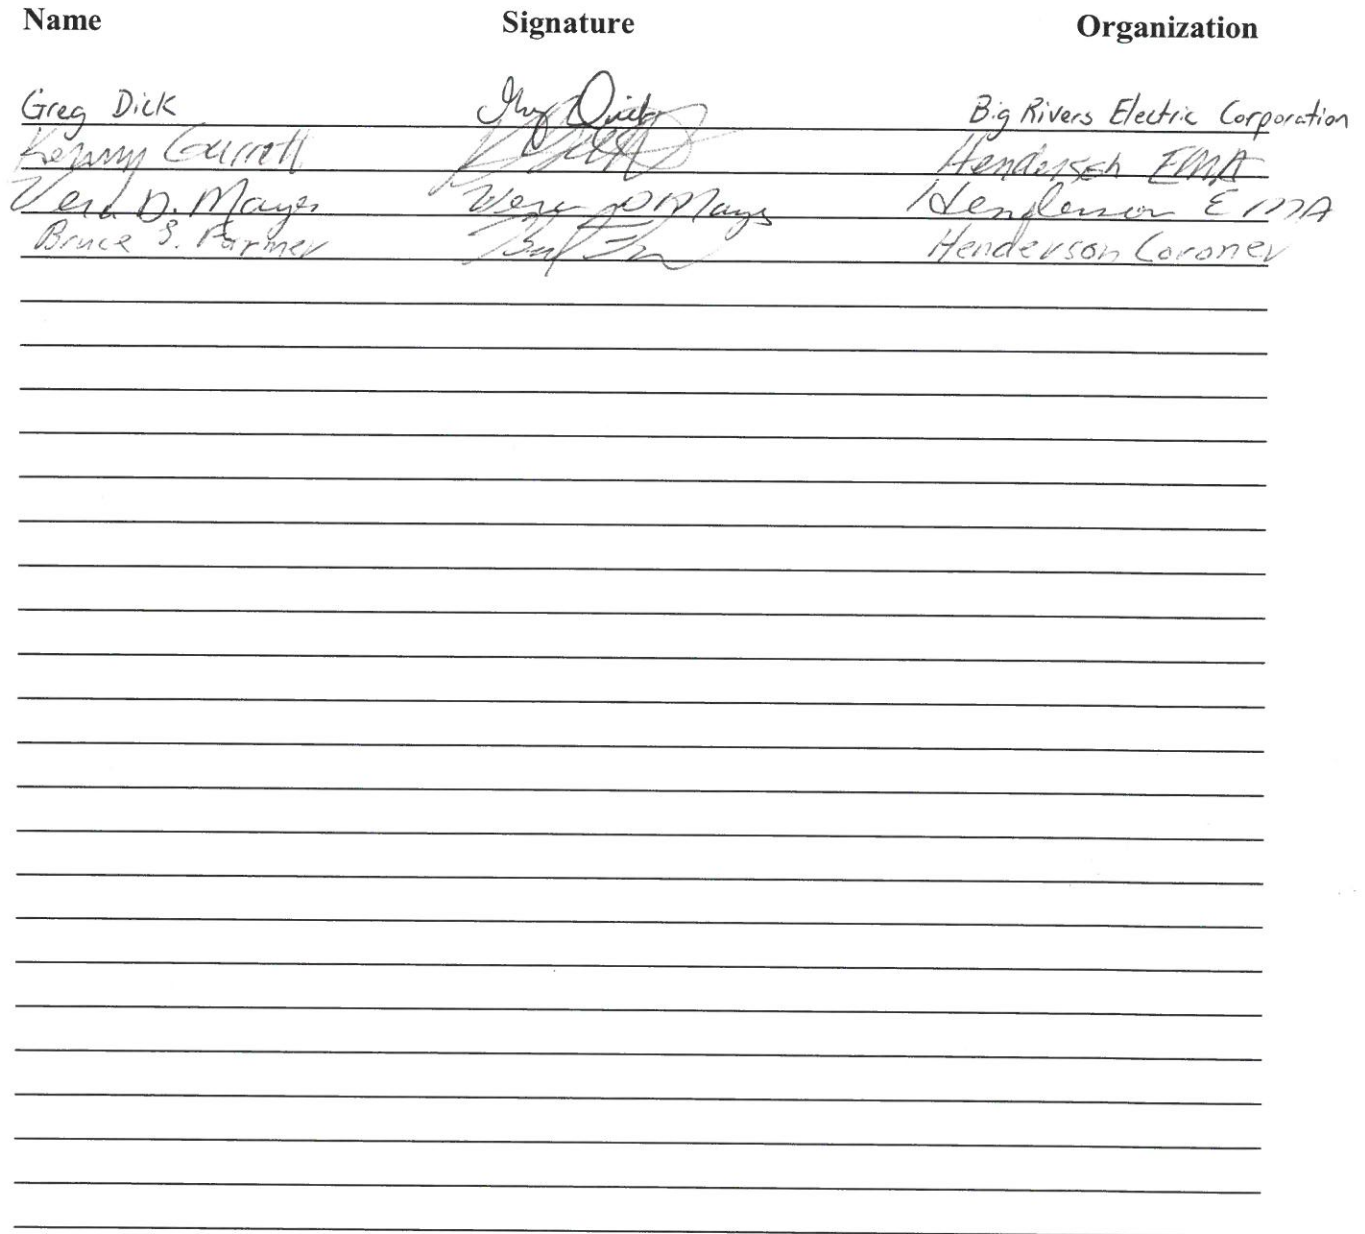 Name Signature Organization
Greg Dick Greg Dick Big Rivers Electric Corporation
Kenny Garrett Henderson EMA
Vera D. Mayes Vera D Mays Henderson EMA
Bruce S. Farmer Henderson Coroner